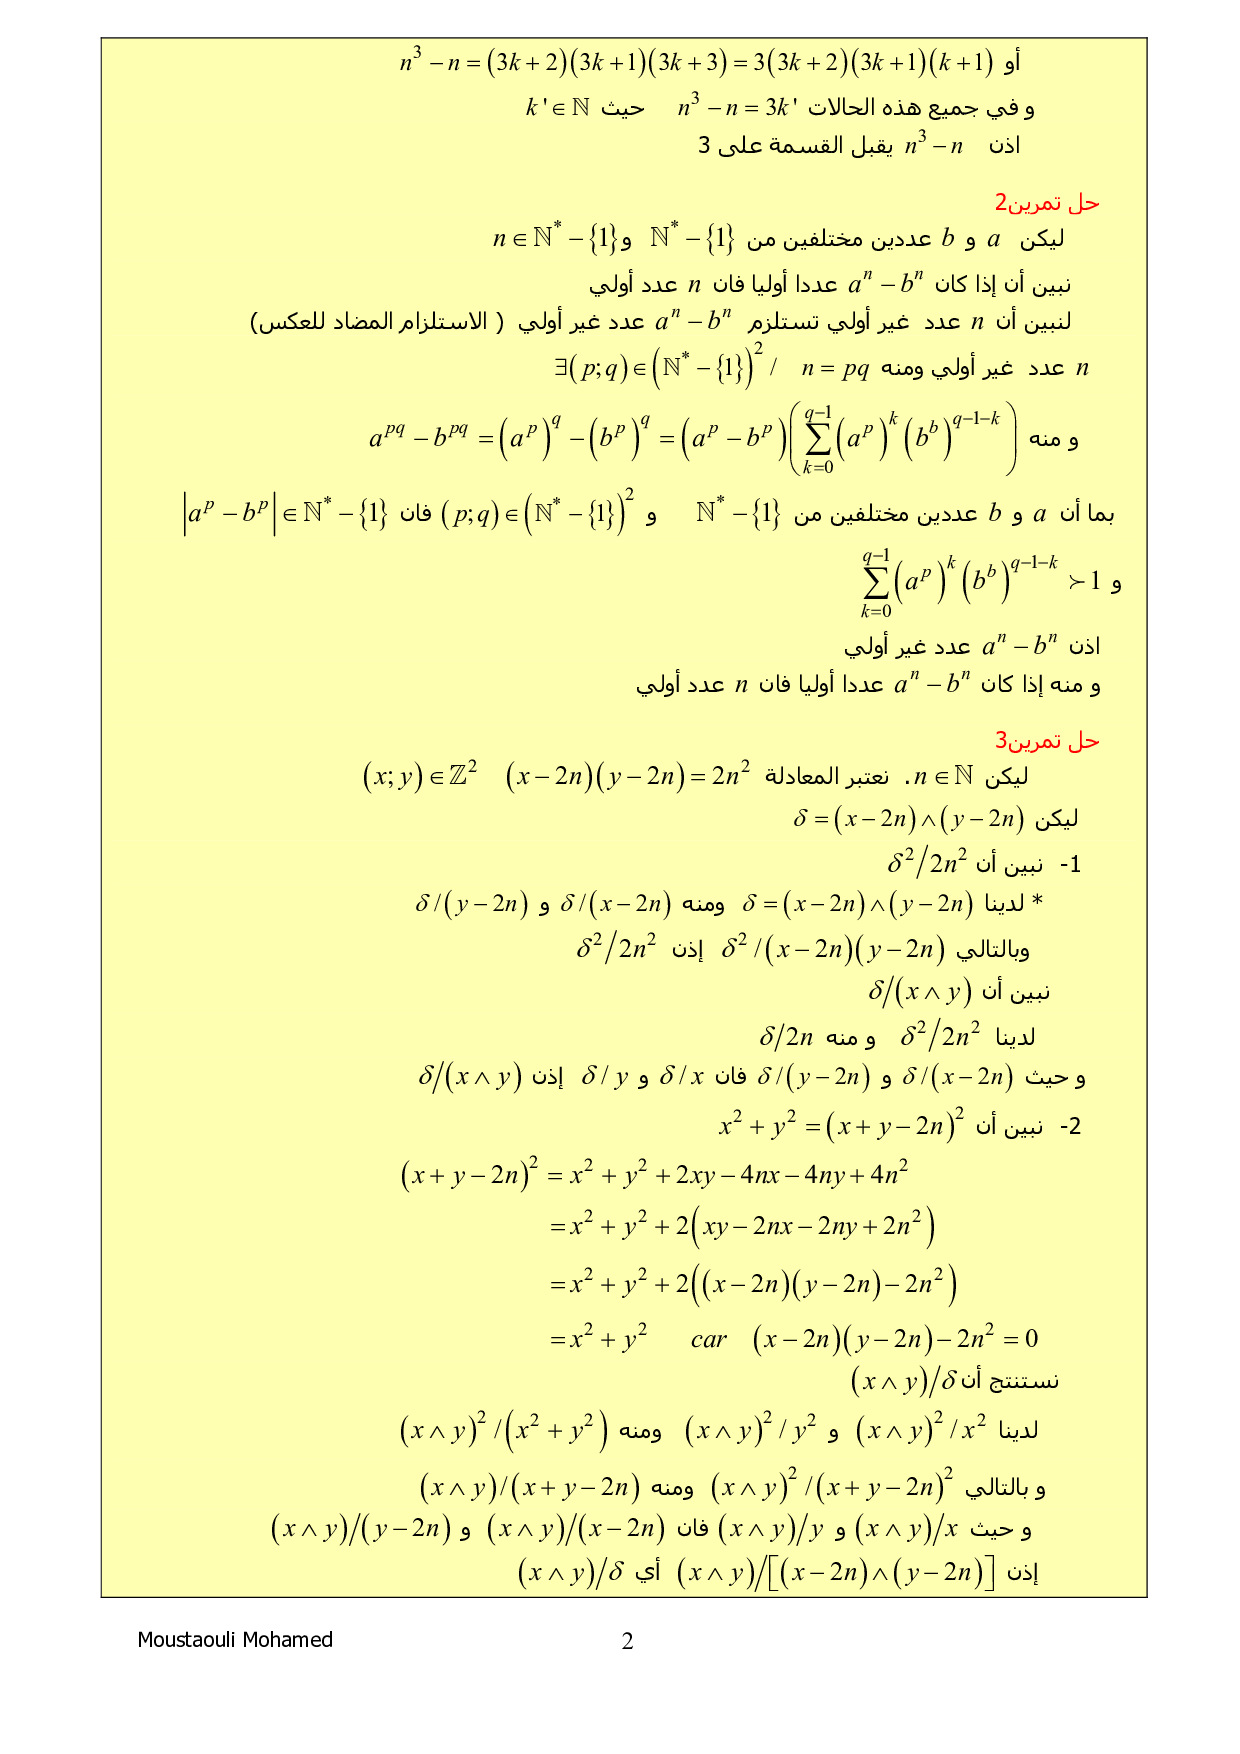 أو n³ − n = (3k + 2)(3k + 1)(3k + 3) = 3(3k + 2)(3k + 1)(k + 1)
و في جميع هذه الحالات n³ − n = 3k' حيث k' ∈ ℕ
اذن n³ − n يقبل القسمة على 3
حل تمرين2
ليكن a و b عددين مختلفين من ℕ* − {1} و n ∈ ℕ* − {1}
نبين أن إذا كان aⁿ − bⁿ عددا أوليا فان n عدد أولي
لنبين أن n عدد غير أولي تستلزم aⁿ − bⁿ عدد غير أولي ( الاستلزام المضاد للعكس)
n عدد غير أولي ومنه ∃(p;q) ∈ (ℕ* − {1})² / n = pq
و منه a^{pq} − b^{pq} = (a^p)^q − (b^p)^q = (a^p − b^p)(∑_{k=0}^{q−1} (a^p)^k (b^b)^{q−1−k})
بما أن a و b عددين مختلفين من ℕ* − {1} و (p;q) ∈ (ℕ* − {1})² فان |a^p − b^p| ∈ ℕ* − {1}
و ∑_{k=0}^{q−1} (a^p)^k (b^b)^{q−1−k} ≻ 1
اذن aⁿ − bⁿ عدد غير أولي
و منه إذا كان aⁿ − bⁿ عددا أوليا فان n عدد أولي
حل تمرين3
ليكن n ∈ ℕ . نعتبر المعادلة (x − 2n)(y − 2n) = 2n² (x; y) ∈ ℤ²
ليكن δ = (x − 2n) ∧ (y − 2n)
1- نبين أن δ²/2n²
* لدينا δ = (x − 2n) ∧ (y − 2n) ومنه δ/(x − 2n) و δ/(y − 2n)
وبالتالي δ²/(x − 2n)(y − 2n) إذن δ²/2n²
نبين أن δ/(x ∧ y)
لدينا δ²/2n² و منه δ/2n
و حيث δ/(x − 2n) و δ/(y − 2n) فان δ/x و δ/y إذن δ/(x ∧ y)
2- نبين أن x² + y² = (x + y − 2n)²
(x + y − 2n)² = x² + y² + 2xy − 4nx − 4ny + 4n²
= x² + y² + 2(xy − 2nx − 2ny + 2n²)
= x² + y² + 2((x − 2n)(y − 2n) − 2n²)
= x² + y² car (x − 2n)(y − 2n) − 2n² = 0
نستنتج أن (x ∧ y)/δ
لدينا (x ∧ y)²/x² و (x ∧ y)²/y² ومنه (x ∧ y)²/(x² + y²)
و بالتالي (x ∧ y)²/(x + y − 2n)² ومنه (x ∧ y)/(x + y − 2n)
و حيث (x ∧ y)/x و (x ∧ y)/y فان (x ∧ y)/(x − 2n) و (x ∧ y)/(y − 2n)
إذن (x ∧ y)/[(x − 2n) ∧ (y − 2n)] أي (x ∧ y)/δ
Moustaouli Mohamed 2